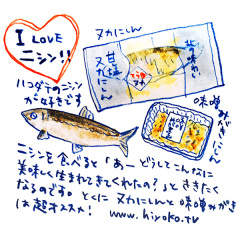 I LOVE
ニシン!!
ハコダテのニシン
が好きです
ヌカにしん
北の味わい
甘塩
ヌカにしん
味噌
みがきにしん
ニシンを食べると「あーどうしてこんなに
美味しく生まれてきてくれたの?」とききたく
なるのです。とくに ヌカにしんと 味噌みがき
は超オススメ! www.hiyoko.tv